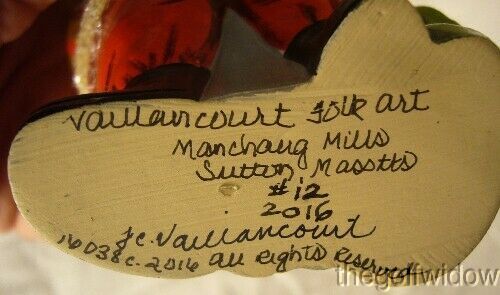 Vaillancourt Folk Art
Manchaug Mills
Sutton Masstts
#12
2016
JC. Vaillancourt
16038 c. 2016 All Rights Reserved
thegolfwidow